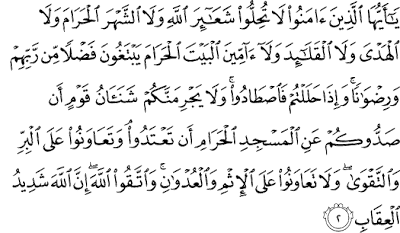 يَٰٓأَيُّهَا ٱلَّذِينَ ءَامَنُوا۟ لَا تُحِلُّوا۟ شَعَٰٓئِرَ ٱللَّهِ وَلَا ٱلشَّهْرَ ٱلْحَرَامَ وَلَا
ٱلْهَدْىَ وَلَا ٱلْقَلَٰٓئِدَ وَلَآ ءَآمِّينَ ٱلْبَيْتَ ٱلْحَرَامَ يَبْتَغُونَ فَضْلًا مِّن رَّبِّهِمْ
وَرِضْوَٰنًا ۚ وَإِذَا حَلَلْتُمْ فَٱصْطَادُوا۟ ۚ وَلَا يَجْرِمَنَّكُمْ شَنَـَٔانُ قَوْمٍ أَن
صَدُّوكُمْ عَنِ ٱلْمَسْجِدِ ٱلْحَرَامِ أَن تَعْتَدُوا۟ ۘ وَتَعَاوَنُوا۟ عَلَى ٱلْبِرِّ
وَٱلتَّقْوَىٰ ۖ وَلَا تَعَاوَنُوا۟ عَلَى ٱلْإِثْمِ وَٱلْعُدْوَٰنِ ۚ وَٱتَّقُوا۟ ٱللَّهَ ۖ إِنَّ ٱللَّهَ شَدِيدُ
ٱلْعِقَابِ ٢